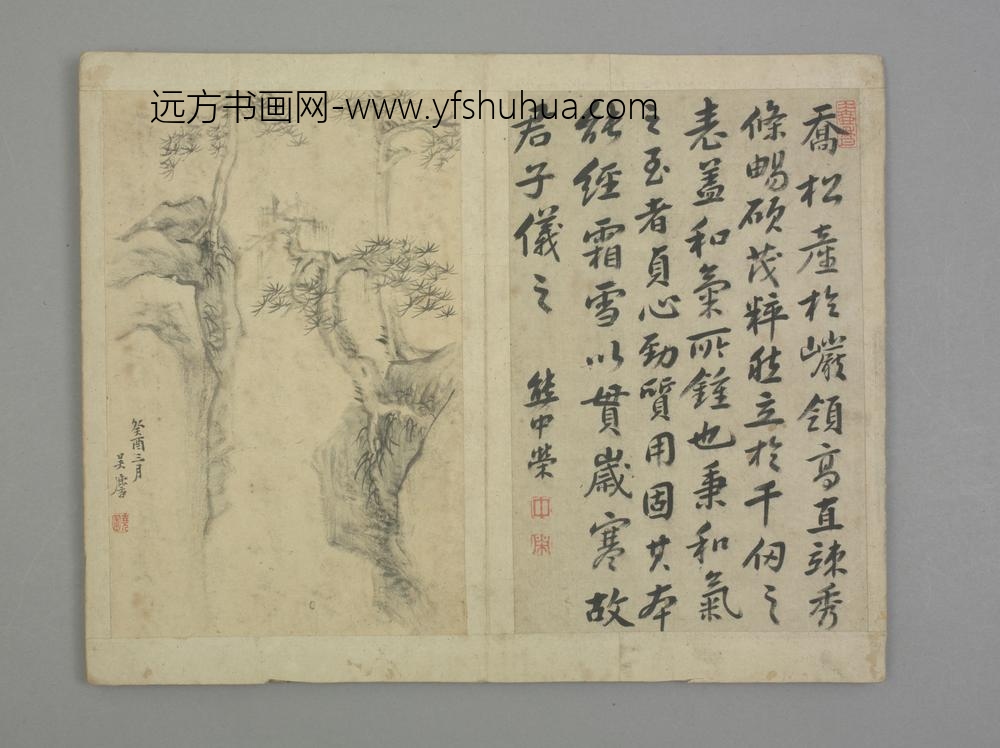 远方书画网-www.yfshuhua.com
喬松產於巗領高直疎秀
條暢碩茂粹然立於千仭之
表蓋和氣所鍾也秉和氣
之至者貞心勁質用固其本
經霜雪以貫歲寒故
君子儀之
熊中榮
癸酉三月
吴